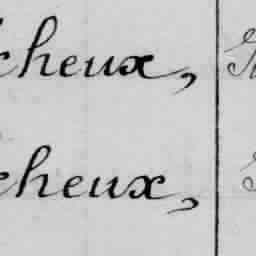 cheux,
cheux,